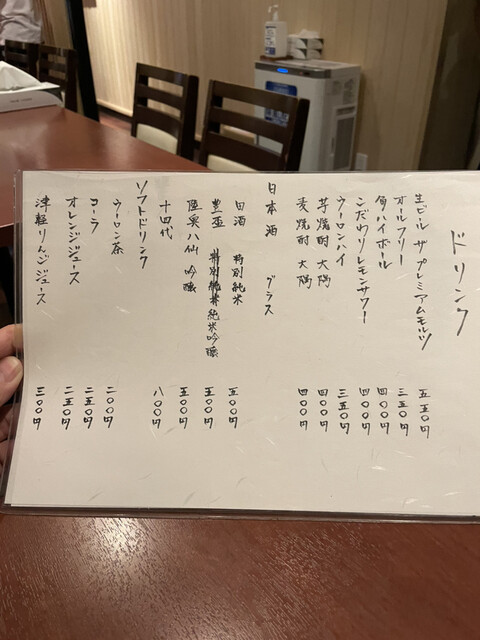 ドリンク
生ビール ザ プレミアムモルツ 五五〇円
オールフリー 三五〇円
角ハイボール 四〇〇円
こだわりレモンサワー 四〇〇円
ウーロンハイ 三五〇円
芋焼酎 大隅 四〇〇円
麦焼酎 大隅 四〇〇円
日本酒 グラス
田酒 特別純米 五〇〇円
豊盃 純米吟醸 五〇〇円
陸奥八仙 吟醸 五〇〇円
十四代 八〇〇円
ソフトドリンク
ウーロン茶 二〇〇円
コーラ 二五〇円
オレンジジュース 二五〇円
津軽りんごジュース 三〇〇円